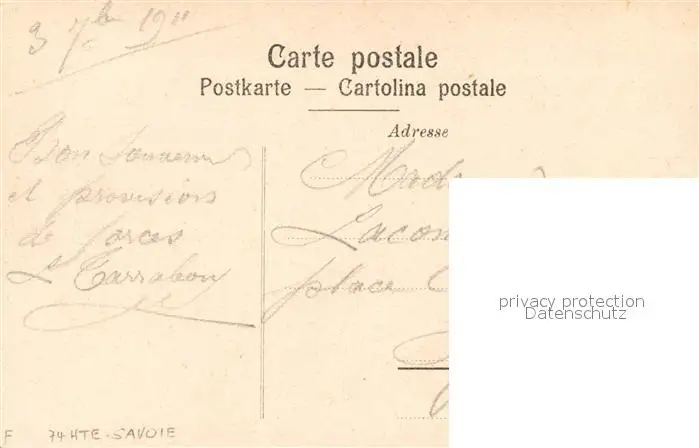 3 7bre 1911
Carte postale
Postkarte — Cartolina postale
Adresse
Bon Souvenir
et provisions
de forces
L Tarrabon
Mad
Lacom
place
privacy protection
Datenschutz
F 74 HTE-SAVOIE